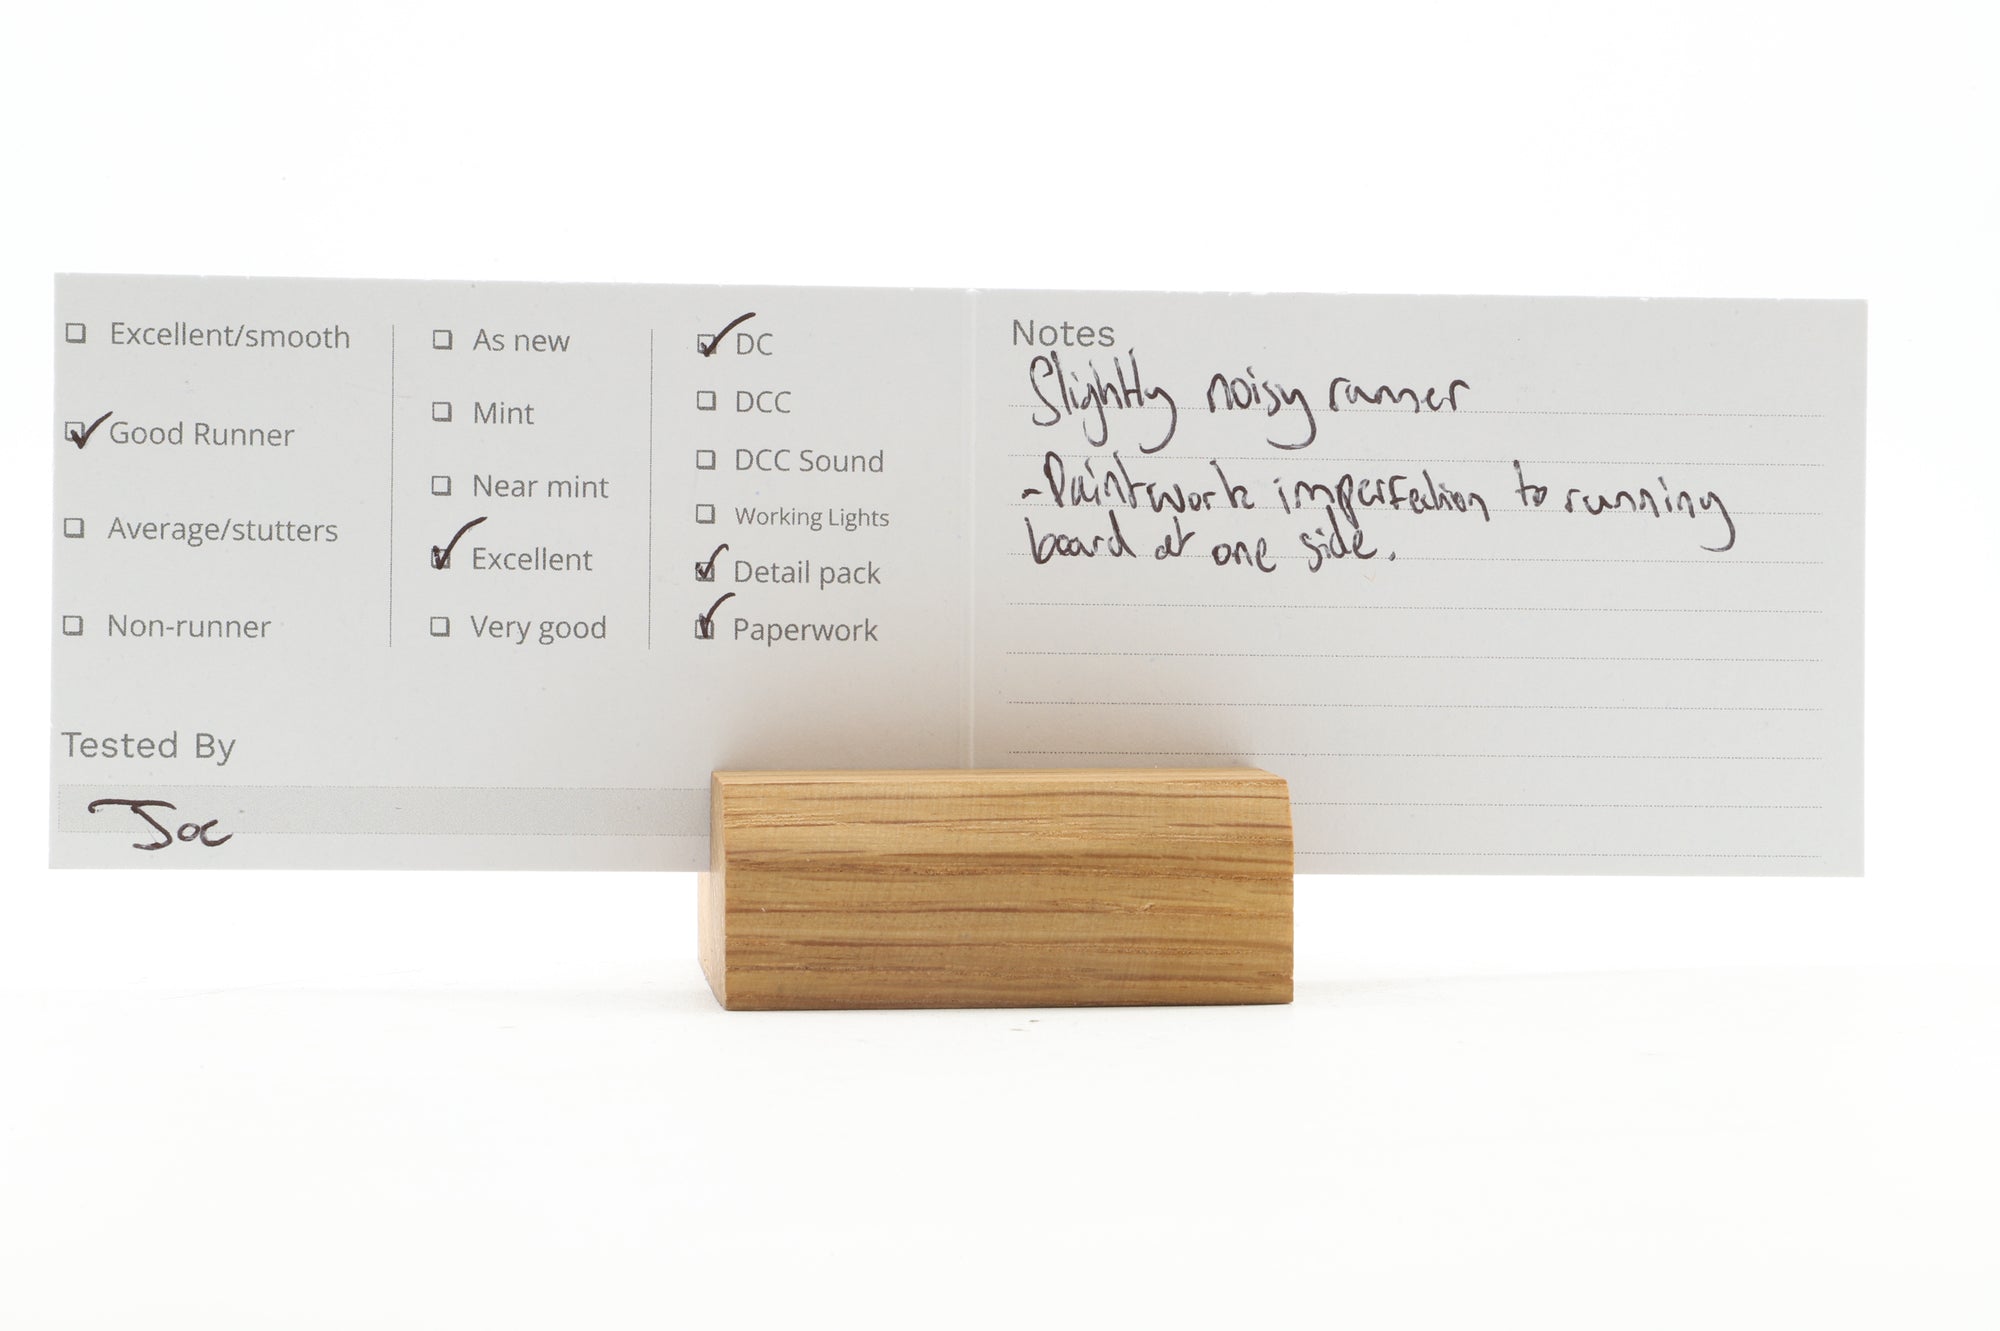 Excellent/smooth
Good Runner
Average/stutters
Non-runner
As new
Mint
Near mint
Excellent
Very good
DC
DCC
DCC Sound
Working Lights
Detail pack
Paperwork
Tested By
Joe
Notes
Slightly noisy runner
-Paintwork imperfection to running
board at one side.